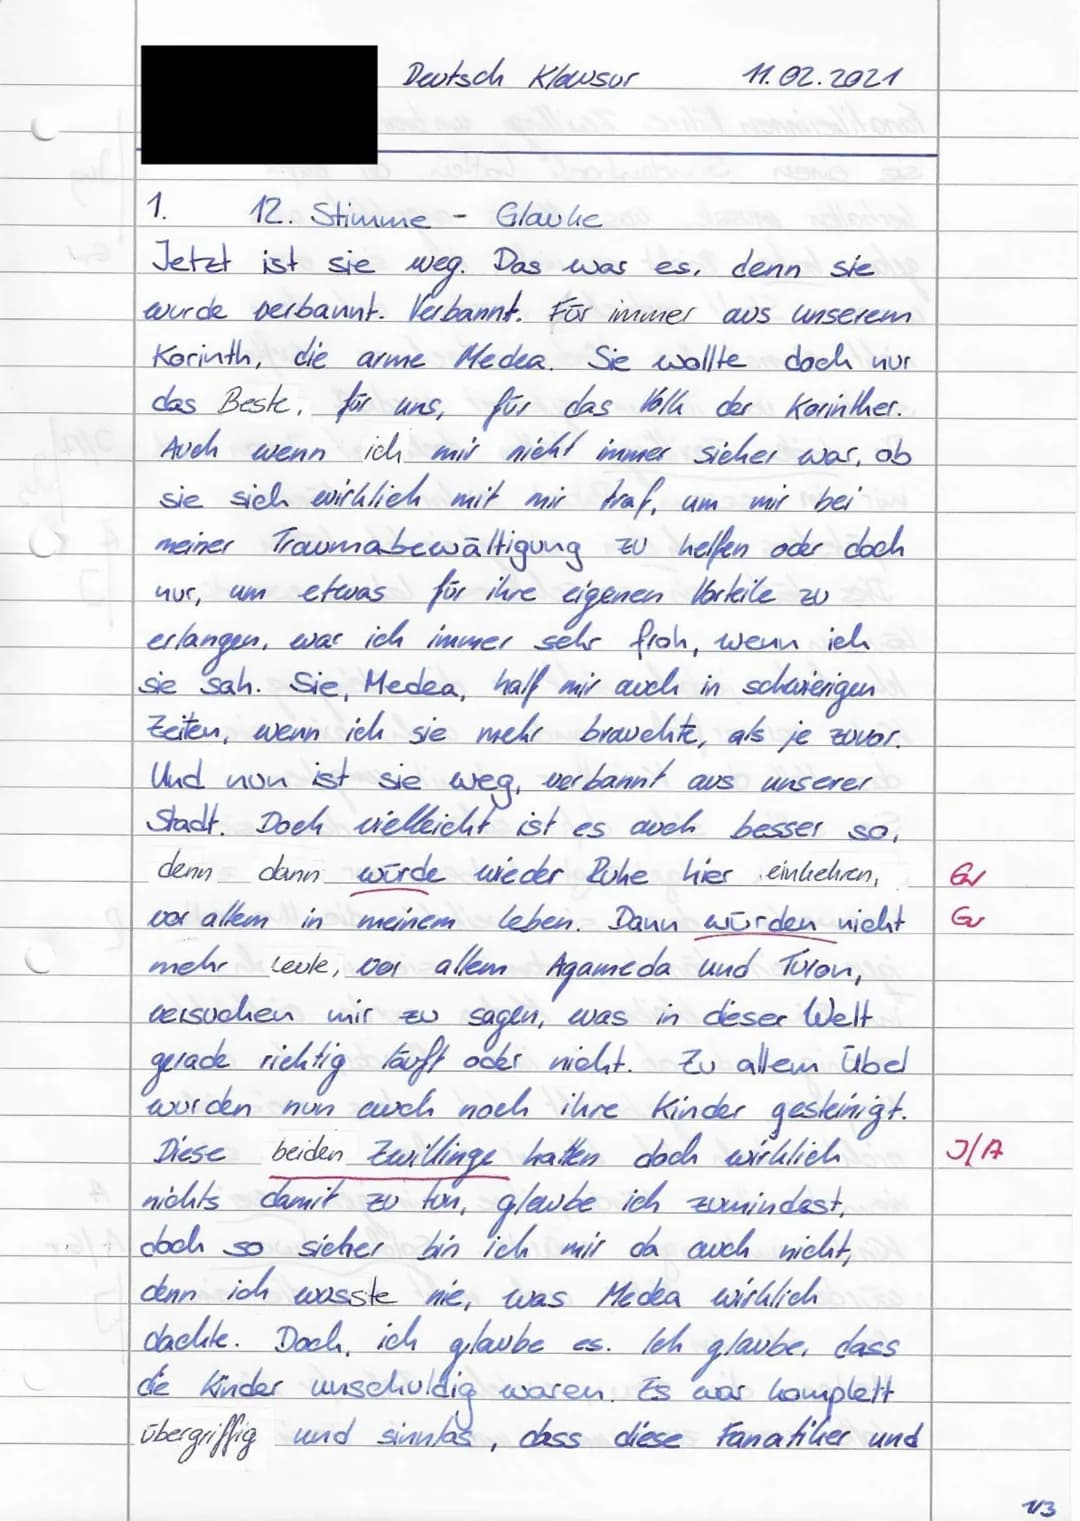 Deutsch Klausur 11.02.2021
1. 12. Stimme - Glauke
Jetzt ist sie weg. Das war es, denn sie
wurde verbannt. Verbannt. Für immer aus unserem
Korinth, die arme Medea. Sie wollte doch nur
das Beste, für uns, für das Volk der Korinther.
Auch wenn ich mir nicht immer sicher war, ob
sie sich wirklich mit mir traf, um mir bei
meiner Traumabewältigung zu helfen oder doch
nur, um etwas für ihre eigenen Vorteile zu
erlangen, war ich immer sehr froh, wenn ich
sie sah. Sie, Medea, half mir auch in schwierigen
Zeiten, wenn ich sie mehr brauchte, als je zuvor.
Und nun ist sie weg, verbannt aus unserer
Stadt. Doch vielleicht ist es auch besser so,
denn dann würde wieder Ruhe hier einkehren, Gr
vor allem in meinem Leben. Dann würden nicht Gr
mehr Leute, vor allem Agameda und Turon,
versuchen mir zu sagen, was in dieser Welt
gerade richtig läuft oder nicht. Zu allem Übel
wurden nun auch noch ihre Kinder gesteinigt.
Diese beiden Zwillinge hatten doch wirklich J/A
nichts damit zu tun, glaube ich zumindest,
doch so sicher bin ich mir da auch nicht,
denn ich wusste nie, was Medea wirklich
dachte. Doch, ich glaube es. Ich glaube, dass
die Kinder unschuldig waren. Es war komplett
übergriffig und sinnlos, dass diese Fanatiker und
1/3